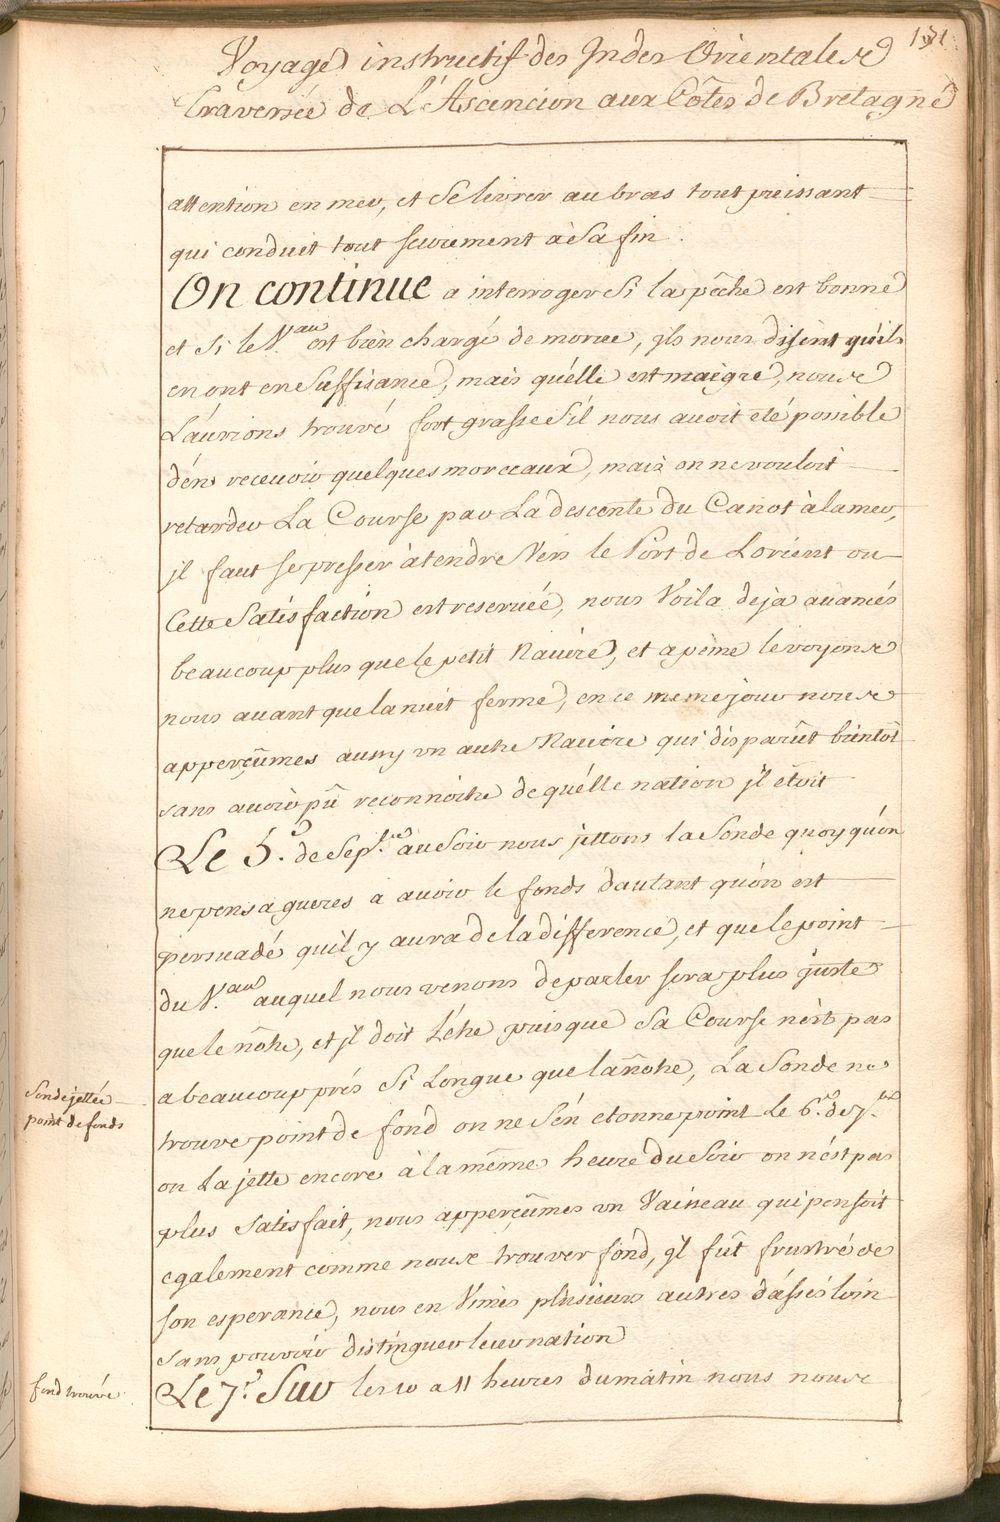 171
Voyage instructif des Indes Orientales
Traversée de L'Ascencion aux Côtes de Bretagne
attention en mer, et Se livrer au bras tout puissant
qui conduit tout seurement à Sa fin.
On continue a interroger Si la pêche est bonne
et Si le V.au est bien chargé de morue, jls nous disent qu'ils
en ont en Suffisance, mais qu'élle est maigre, nous
L'áurions trouvé fort grasse S'il nous avoit eté possible
d'én recevoir quelques morceaux, mais on ne vouloit
retarder La Course par La descente du Canot à la mer,
jl faut se presser à tendre Vers le Port de Lorient ou
Cette Satisfaction est reservée, nous Voila deja avancés
beaucoup plus que le petit Navire, et a peine le voyons
nous avant que la nuit ferme, en ce meme jour nous
apperçûmes aussy un autre Navire qui disparût bientôt
sans avoir pû reconnoitre de quélle nation jl étoit
Le 5.e de Sep.bre au Soir nous jettons la Sonde quoy qu'on
ne pensa gueres a avoir le fonds d'autant qu'on est
persuadé qu'il y aura de la difference, et que le point
du V.au auquel nous venons de parler sera plus juste
que le nôtre, et jl doit L'étre puisque Sa Course n'est pas
a beaucoup prés Si Longue que la nôtre, La Sonde ne
Sonde jettée
point de fonds
trouve point de fond on ne S'én etonne point Le 6.e de 7.bre
on La jette encore à la même heure du Soir on n'ést pas
plus Satisfait, nous apperçûmes un Vaisseau qui pensoit
egalement comme nous trouver fond, jl fût frustré de
son esperance, nous en Vimes plusieurs autres d'ássés loin
sans pouvoir distinguer leur nation
fond trouvé
Le 7.e Sur les 10 a 11 heures du matin nous nous